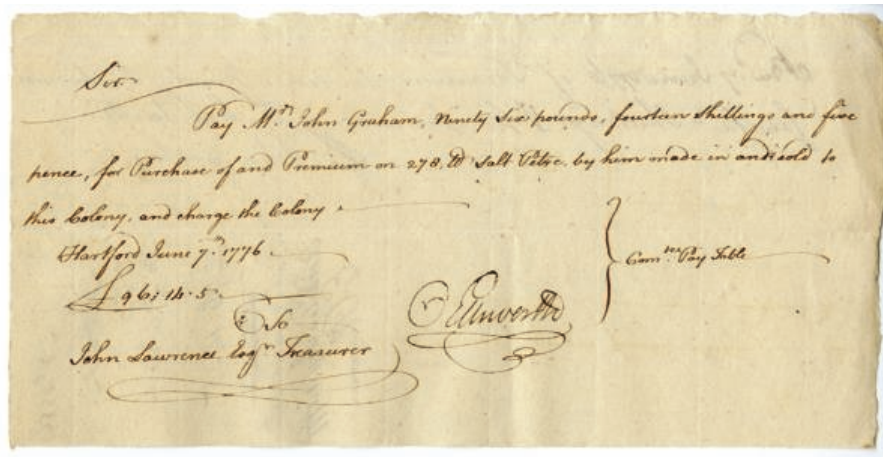 Sir
Pay Mr John Graham, Ninety Six pounds, fourteen Shillings and five
pence, for Purchase of and Premium on 278. lb Salt Petre, by him made in and sold to
this Colony, and charge the Colony
Hartford June 7th 1776
£96: 14. 5
To
John Lawrence Esqr Treasurer
Ellsworth
Comtee Pay Table